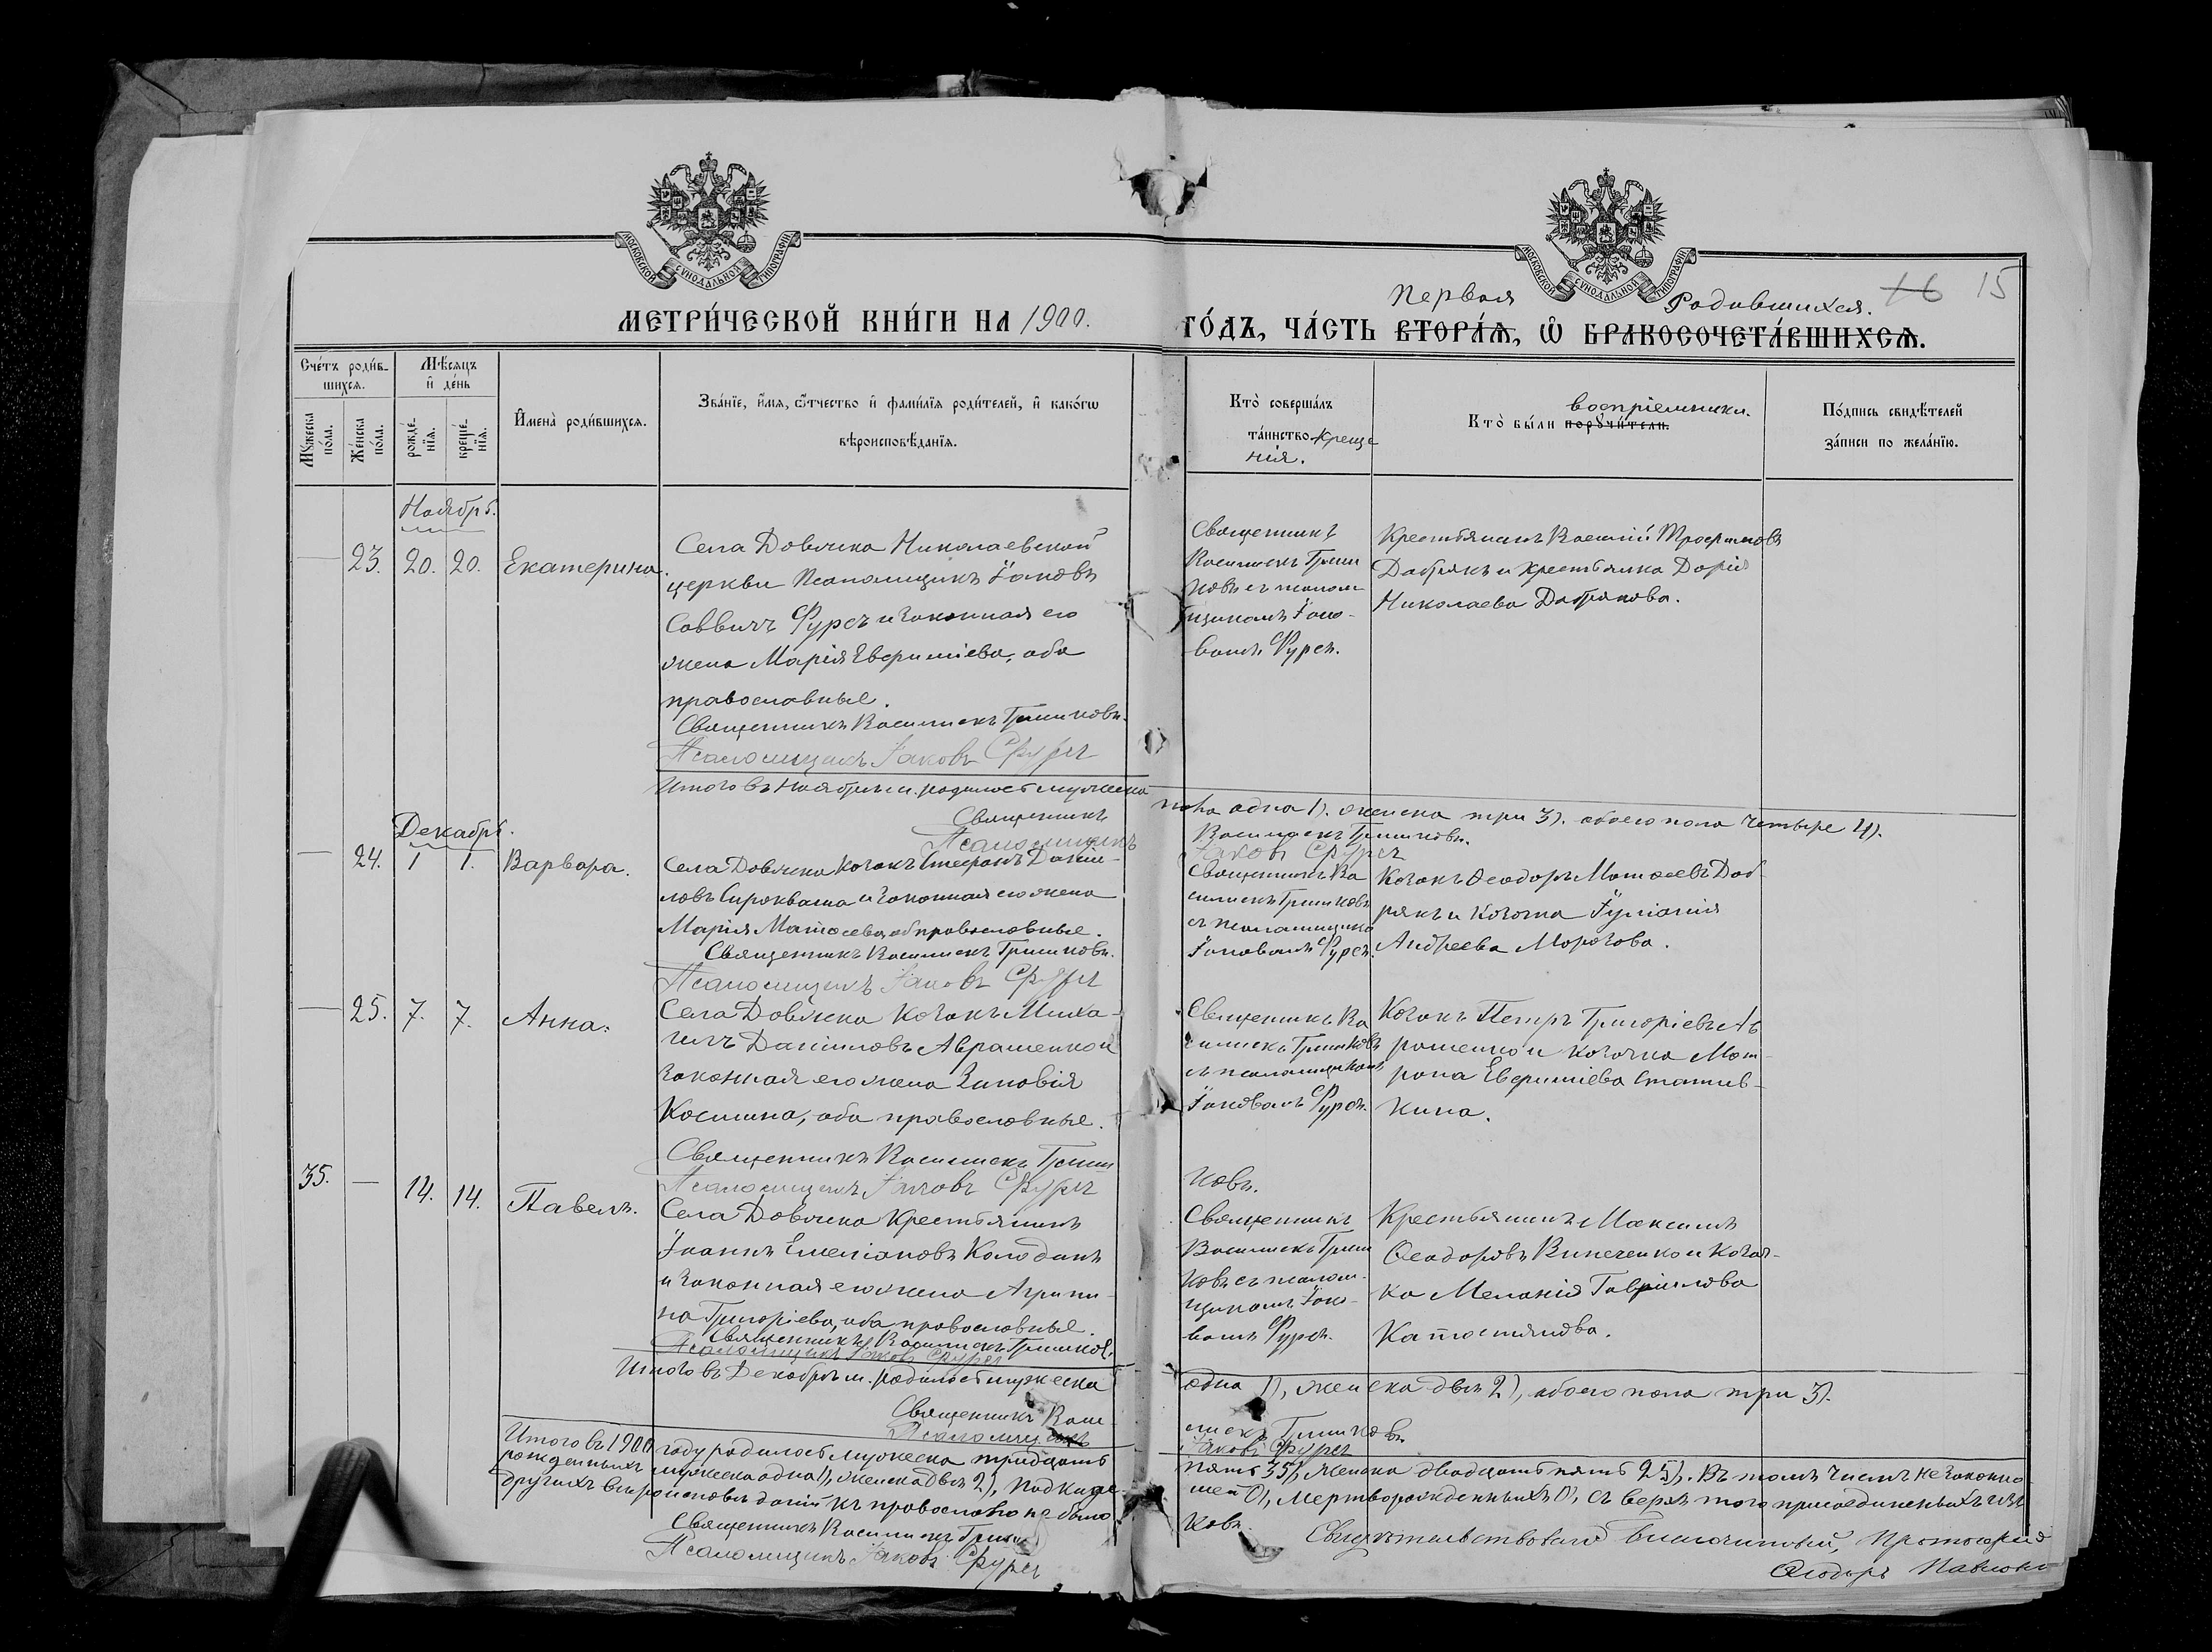 МОСКОВСКОЙ СѴНОДАЛЬНОЙ ТИПОГРАФІИ
МОСКОВСКОЙ СѴНОДАЛЬНОЙ ТИПОГРАФІИ
первая Родившихся. 16 15
МЕТРИ́ЧЕСКОЙ КНИ́ГИ НА 1900. ГО́ДЪ, ЧА́СТЬ ВТОРА́Ѧ, Ѽ БРАКОСОЧЕТА́ВШИХСѦ.
Сче́тъ роди́в-
шихсѧ.
Мѣ́сѧцъ
и҆ де́нь
Мꙋ́жеска
по́ла.
Же́нска
по́ла.
рожде́-
нїѧ.
креще́-
нїѧ.
И҆мена̀ роди́вшихсѧ.
Зва́нїе, и҆́мѧ, ѻ҆́тчество и҆ фами́лїѧ роди́телей, и҆ како́гѡ
вѣроисповѣ́данїѧ.
Кто̀ соверша́лъ
та́инство креще
нія.
воспріемники.
Кто̀ бы́ли порꙋчи́тели.
По́дпись свидѣ́телей
за́писи по жела́нїю.
Ноябрь.
— 23. 20. 20. Екатерина.
Села Довжика Николаевской
церкви Псаломщикъ Іаковъ
Саввичъ Фурсъ и законная его
жена Марія Евфиміева, оба
православные.
Священникъ Василискъ Гришковъ.
Псаломщикъ Іаковъ Фурсъ
Священникъ
Василискъ Гриш
ковъ съ псалом
щикомъ Іако-
вомъ Фурсъ.
Крестьянинъ Василій Трофимовъ
Добрякъ и крестьянка Дарія
Николаева Добрякова.
Итого въ Ноябрѣ м. родилось мужеска
пола одна 1). женска три 3). обоего пола четыре 4).
Священникъ Василискъ Гришковъ.
Псаломщикъ Іаковъ Фурсъ
Декабрь.
— 24. 1 1. Варвара.
Села Довжика козакъ Стефанъ Даніи-
ловъ Сыроквашa и законная его жена
Марія Матѳеева, об православные.
Священникъ Василискъ Гришковъ.
Псаломщикъ Іаковъ Фурсъ
Священникъ Ва
силискъ Гришковъ
съ псаломщико
Іаковомъ Фурсъ.
Козакъ Ѳеодоръ Матѳеевъ Доб-
рякъ и козачка Іуліанія
Андреева Морозова.
— 25. 7. 7. Анна.
Села Довжика козакъ Миха-
илъ Даніиловъ Аврашенко и
законная его жена Зиновія
Космина, оба православные.
Священникъ Василискъ Гриш
ковъ.
Псаломщикъ Іаковъ Фурсъ
Священникъ Ва
силискъ Гришковъ
съ псаломщикомъ
Іаковомъ Фурсъ.
Козакъ Петръ Григоріевъ Ав
рашенко и козачка Мат-
рона Евфиміева
кина.
35. — 14. 14. Павелъ.
Села Довжика Крестьянинъ
Іоаннъ Емеліановъ
и законная его жена Агрипи-
на Григоріева, оба православные.
Священникъ Василискъ Гришков.
Псаломщикъ Іаковъ Фурсъ
Священникъ
Василискъ Гриш
ковъ съ псалом-
щикомъ Іако-
вомъ Фурсъ.
Крестьянинъ Максимъ
Ѳеодоровъ Винеченко и козач-
ка Меланія Гавріилова
Итого въ Декабрѣ м. родилось мужеска
одна 1), женска двѣ 2), обоего пола три 3).
Священникъ Васи-
лискъ Гришковъ.
Псаломщикъ Іаковъ Фурсъ
Итого въ 1900 году родилось мужеска тридцать пять 35), женска двадцать пять 25). Въ томъ числѣ незаконно-
рожденныхъ мужеска одна 1), женска двѣ 2), подкиды-
шей 0), мертворожденныхъ 0, съ верхъ того присоединеныхъ изъ
другихъ вѣроисповѣданій къ православію не было
Священникъ Василискъ Гриш
ковъ.
Псаломщикъ Іаковъ Фурсъ
Свидѣтельствовалъ Благочинный, Протоіерей
Ѳеодоръ